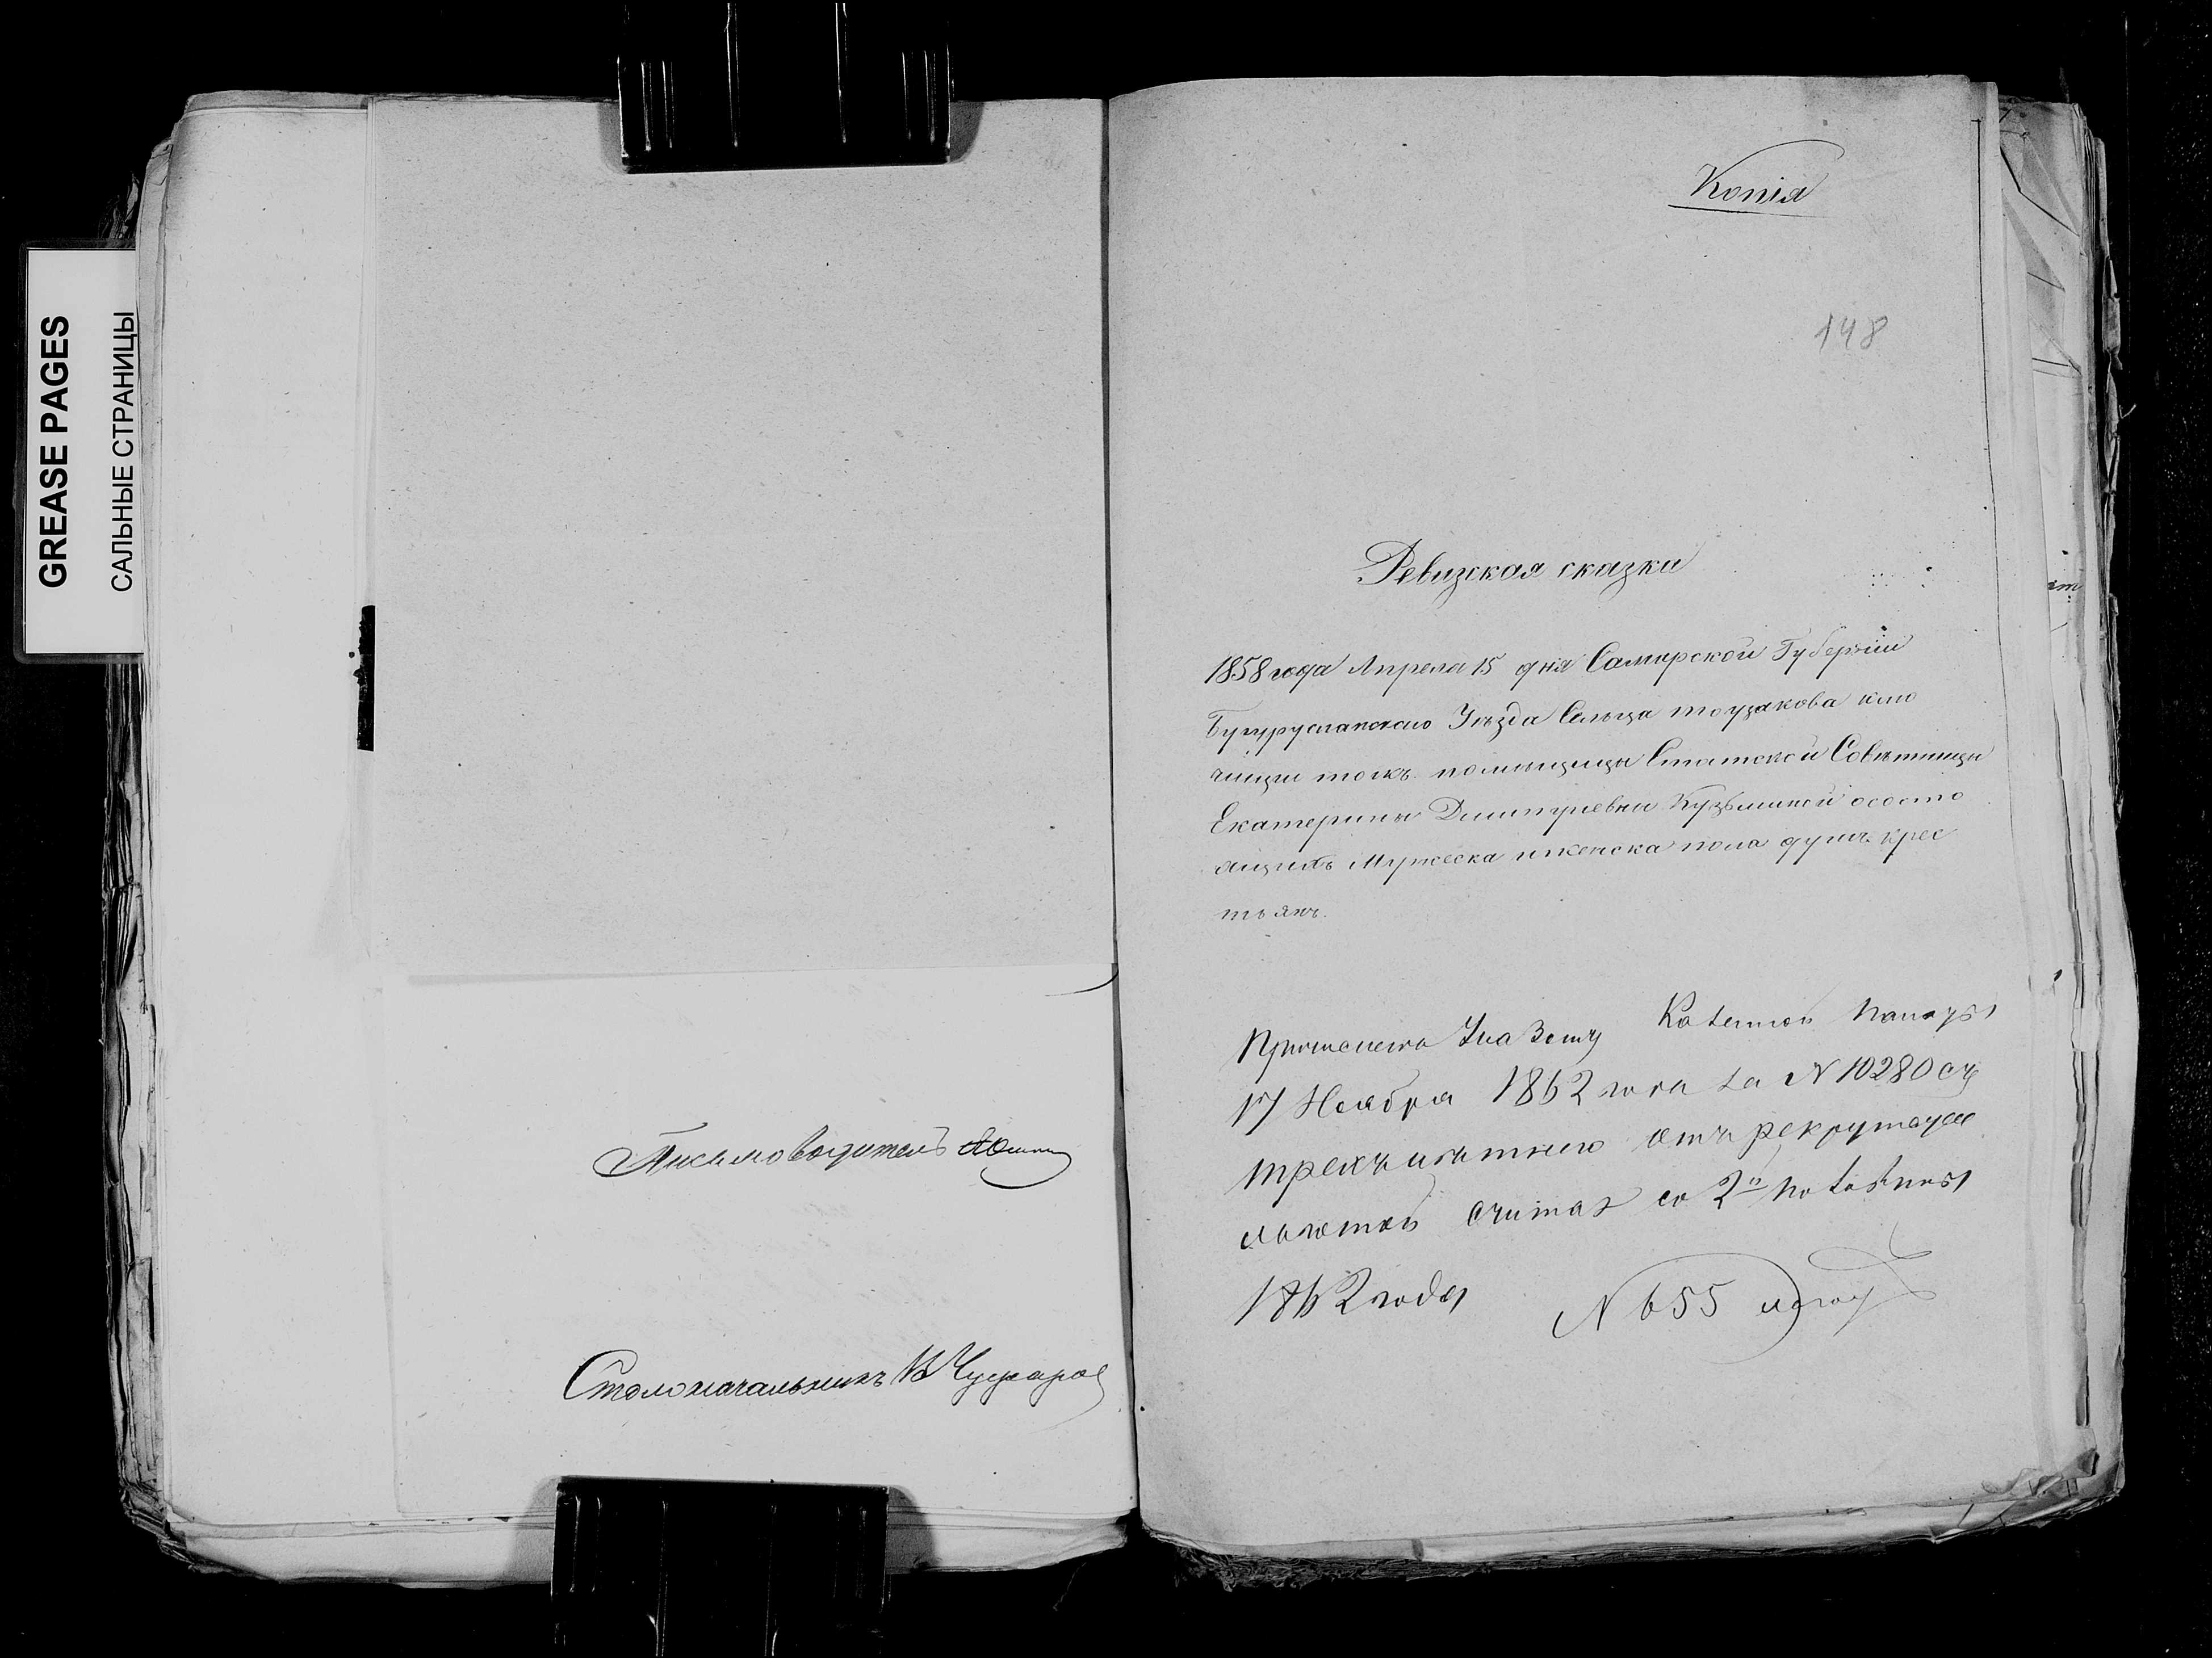 GREASE PAGES
САЛЬНЫЕ СТРАНИЦЫ
Письмоводитель
Столоначальникъ
Копія
148
Ревизская сказка
1858 года Апреля 15 дня Самарской Губерніи
Бугурусланского Уѣзда Сельца тоузакова клю
чищи тожъ помѣщицы Статской Совѣтницы
Екатерины Димитріевны Кузьминой осостo
ящихъ Мужеска иженска пола душъ крес
тьянъ.
Казенной палаты
17 Ноября 1862 года за N 10280 съ
отъ рекрутской
считая со 2й половины
1862 года
N 655